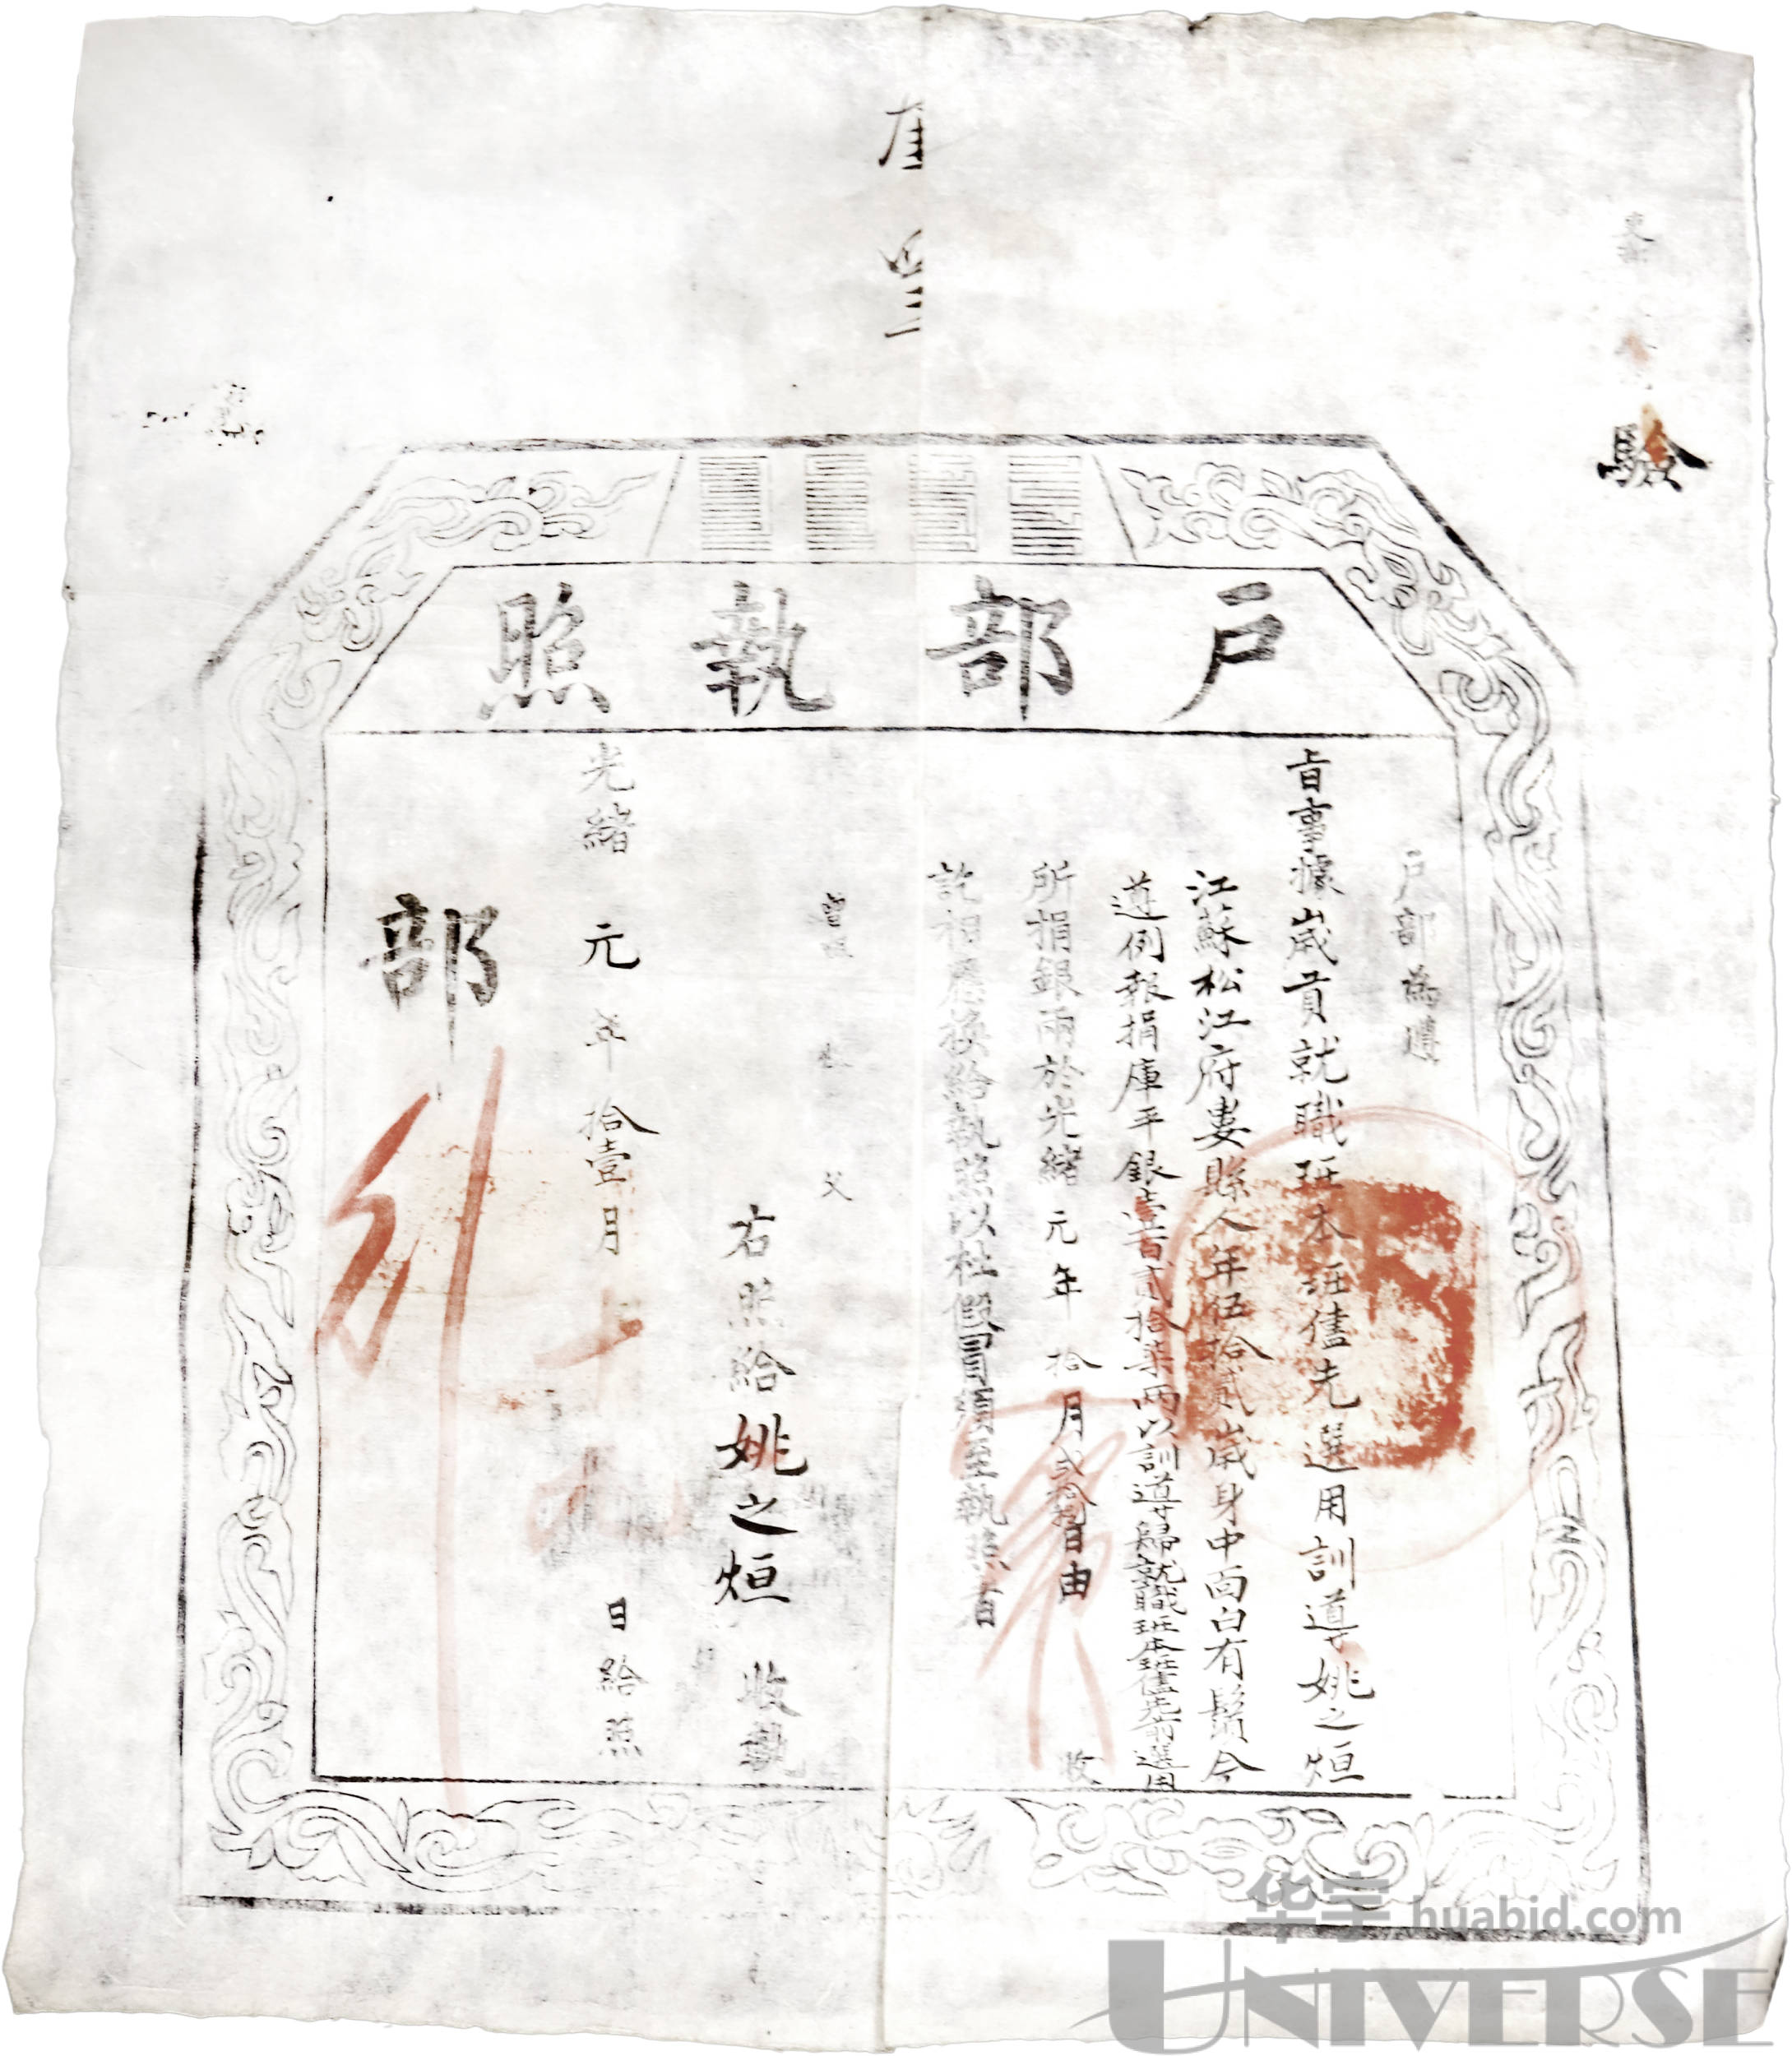 驗
戶部執照
戶部為遵
旨事據歲貢就職班本班儘先選用訓導姚之烜
江蘇松江府婁縣人年伍拾貳歲身中面白有鬚今
遵例報捐庫平銀壹百貳拾柒兩以訓導歸就職班本班儘先前選用
所捐銀兩於光緒元年拾月貳拾日由 收
訖相應換給執照以杜假冒須至執照者
曾 父
右照給姚之烜 收執
光緒元年拾壹月十九日給照
部
行
华宇 huabid.com
UNIVERSE